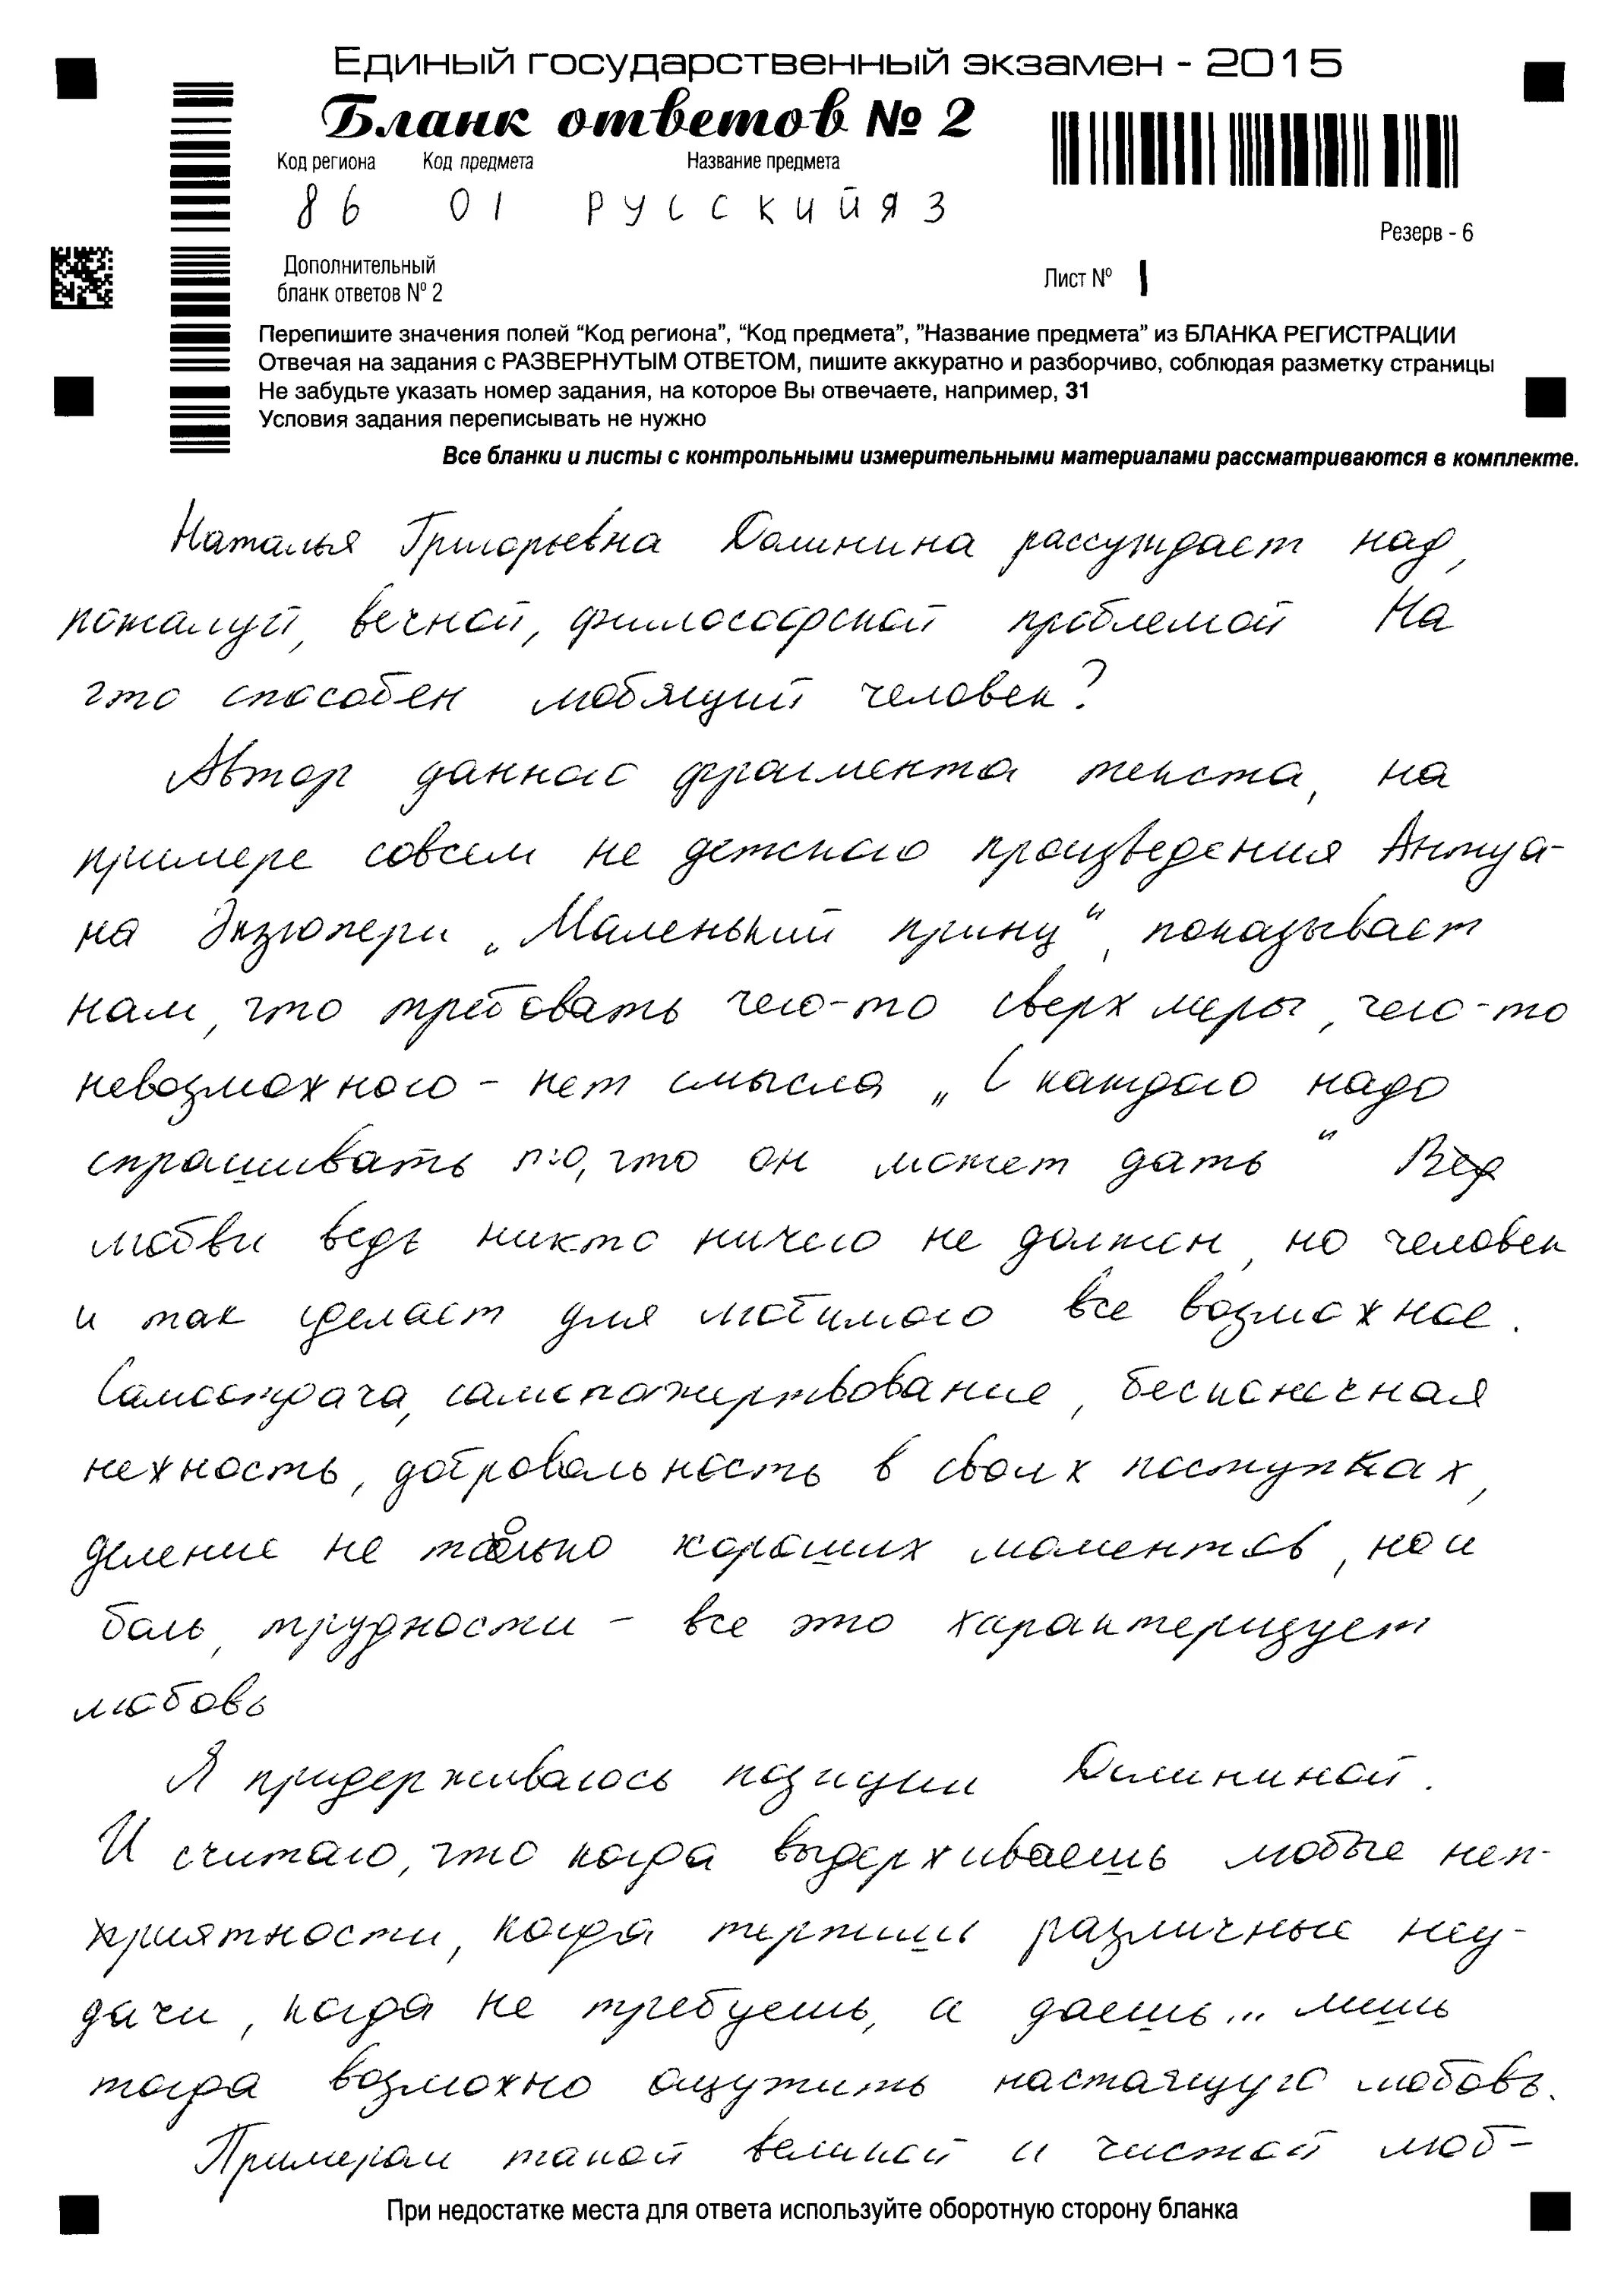 Единый государственный экзамен - 2015
Бланк ответов № 2
Код региона Код предмета Название предмета
86 01 РУССКИЙЯЗ
Резерв - 6
Дополнительный
бланк ответов № 2
Лист № 1
Перепишите значения полей “Код региона”, “Код предмета”, ”Название предмета” из БЛАНКА РЕГИСТРАЦИИ
Отвечая на задания с РАЗВЕРНУТЫМ ОТВЕТОМ, пишите аккуратно и разборчиво, соблюдая разметку страницы
Не забудьте указать номер задания, на которое Вы отвечаете, например, 31
Условия задания переписывать не нужно
Все бланки и листы с контрольными измерительными материалами рассматриваются в комплекте.
Наталья Григорьевна Долинина рассуждает над,
пожалуй, вечной, философской проблемой На
что способен любящий человек?
Автор данного фрагмента текста, на
примере совсем не детского произведения Антуа-
на Экзюпери „Маленький принц“, показывает
нам, что требовать чего-то сверх меры, чего-то
невозможного – нет смысла „С каждого надо
спрашивать то, что он может дать“
любви ведь никто ничего не должен, но человек
и так сделает для любимого все возможное.
Самоотдача, самопожертвование, бесконечная
нежность, добровольность в своих поступках,
деление не только хороших моментов, но и
боль, трудности – все это характеризует
любовь
Я придерживаюсь позиции Долининой.
И считаю, что когда выдерживаешь любые неп-
приятности, когда терпишь различные неу-
дачи, когда не требуешь, а даешь... лишь
тогда возможно ощутить настоящую любовь.
Примером такой великой и чистой люб-
При недостатке места для ответа используйте оборотную сторону бланка